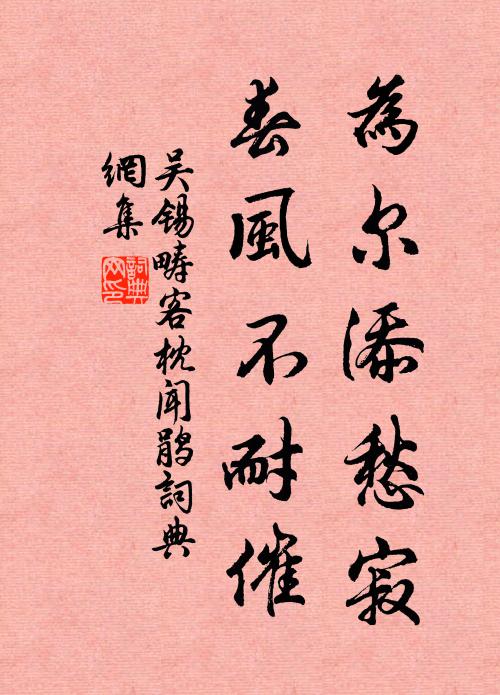 為尔添愁寂
春風不耐催
吴锡畴客枕闻鹃詞典
網集
詞典網印